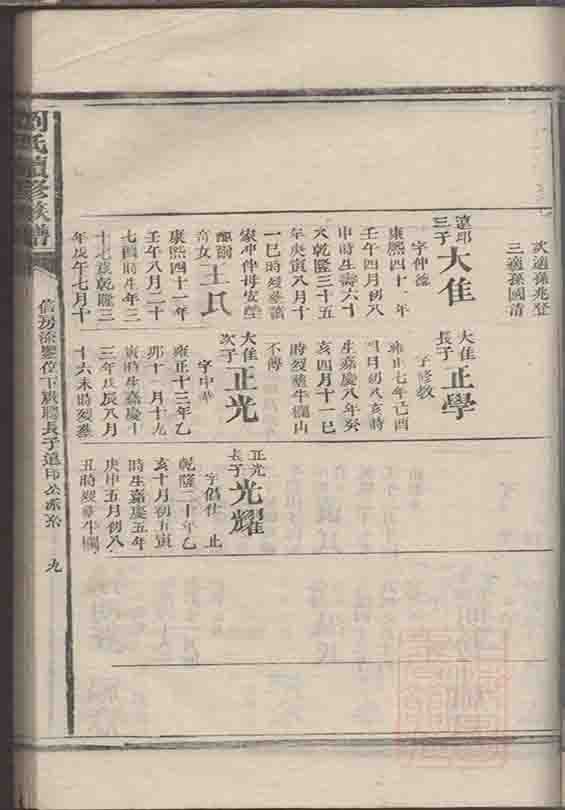 次適孫兆登
三適孫國清
遠印
三子
大佳
字仲德
康熙四十一年
壬午四月初八
申時生壽六十
九乾隆三十五
年庚寅八月十
一巳時歿葬
家冲仲母
配
女
王氏
康熙四十一年
壬午八月二十
七酉時生年三
十七歲乾隆三
年戊午七月十
大佳
長子
正學
字修教
雍正七年己酉
四月初八亥時
生嘉慶八年癸
亥四月十一巳
時歿葬牛欄山
不傳
大佳
次子
正光
字中
雍正十三年乙
卯十一月十九
寅時生嘉慶十
三年戊辰八月
十六未時歿葬
正光
長子
光耀
字倡仕 止
乾隆二十年乙
亥十月初五寅
時生嘉慶五年
庚申五月初八
丑時歿葬牛欄
劉氏續修族譜
信房
長子遠印公派系
九